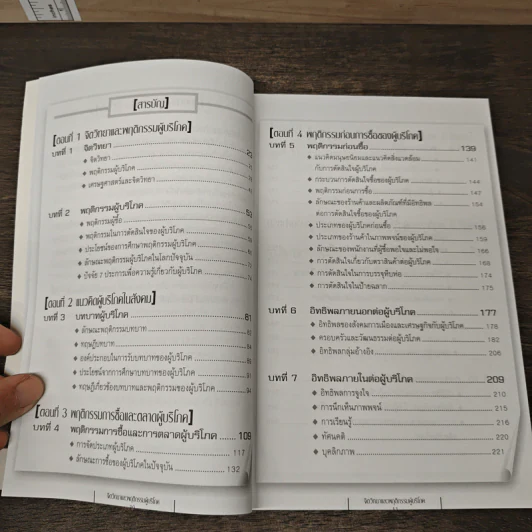 [สารบัญ]
[ตอนที่ 1 จิตวิทยาและพฤติกรรมผู้บริโภค]
บทที่ 1 จิตวิทยา
◆ จิตวิทยา
◆ พฤติกรรมผู้บริโภค
◆ เศรษฐศาสตร์และจิตวิทยา
บทที่ 2 พฤติกรรมผู้บริโภค 53
◆ พฤติกรรมผู้ซื้อ
◆ พฤติกรรมในการตัดสินใจของผู้บริโภค
◆ ประโยชน์ของการศึกษาพฤติกรรมผู้บริโภค
◆ ลักษณะพฤติกรรมผู้บริโภคในโลกปัจจุบัน
◆ ปัจจัย 7 ประการเพื่อความรู้เกี่ยวกับผู้บริโภค
[ตอนที่ 2 แนวคิดผู้บริโภคในสังคม]
บทที่ 3 บทบาทผู้บริโภค 81
◆ ลักษณะพฤติกรรมบทบาท
◆ ทฤษฎีบทบาท
◆ องค์ประกอบในการรับบทบาทของผู้บริโภค
◆ ประโยชน์จากการศึกษาบทบาทของผู้บริโภค
◆ ทฤษฎีเกี่ยวข้องบทบาทและพฤติกรรมของผู้บริโภค
[ตอนที่ 3 พฤติกรรมการซื้อและตลาดผู้บริโภค]
บทที่ 4 พฤติกรรมการซื้อและการตลาดผู้บริโภค 109
◆ การจัดประเภทผู้บริโภค 117
◆ ลักษณะการซื้อของผู้บริโภคในปัจจุบัน 132
จิตวิทยาและพฤติกรรมผู้บริโภค
[ตอนที่ 4 พฤติกรรมก่อนการซื้อของผู้บริโภค]
บทที่ 5 พฤติกรรมก่อนซื้อ 139
◆ แนวคิดมนุษยนิยมและแนวคิดสิ่งแวดล้อม 141
กับการตัดสินใจผู้บริโภค
◆ กระบวนการตัดสินใจซื้อของผู้บริโภค 144
◆ พฤติกรรมก่อนการซื้อ 147
◆ ลักษณะของร้านค้าและผลิตภัณฑ์ที่มีอิทธิพล 154
ต่อการตัดสินใจซื้อของผู้บริโภค
◆ ประเภทของผู้บริโภคก่อนซื้อ 156
◆ ประเภทของร้านค้าในภาพพจน์ของผู้บริโภค 159
◆ ลักษณะของพนักงานที่ผู้ซื้อพอใจและไม่พอใจ 166
◆ การตัดสินใจเกี่ยวกับตราสินค้าต่อผู้บริโภค 168
◆ การตัดสินใจในการบรรจุหีบห่อ 174
◆ การตัดสินใจในป้ายฉลาก 175
บทที่ 6 อิทธิพลภายนอกต่อผู้บริโภค 177
◆ อิทธิพลของสังคมการเมืองและเศรษฐกิจกับผู้บริโภค 178
◆ ครอบครัวและวัฒนธรรมต่อผู้บริโภค 182
◆ อิทธิพลกลุ่มอ้างอิง 206
บทที่ 7 อิทธิพลภายในต่อผู้บริโภค 209
◆ อิทธิพลการจูงใจ 210
◆ การนึกเห็นภาพพจน์ 215
◆ การเรียนรู้ 216
◆ ทัศนคติ 220
◆ บุคลิกภาพ 221
จิตวิทยาและพฤติกรรมผู้บริโภค